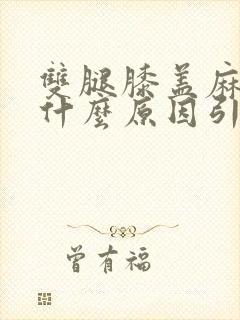 雙腿膝盖麻
什麼原因引
曾有福